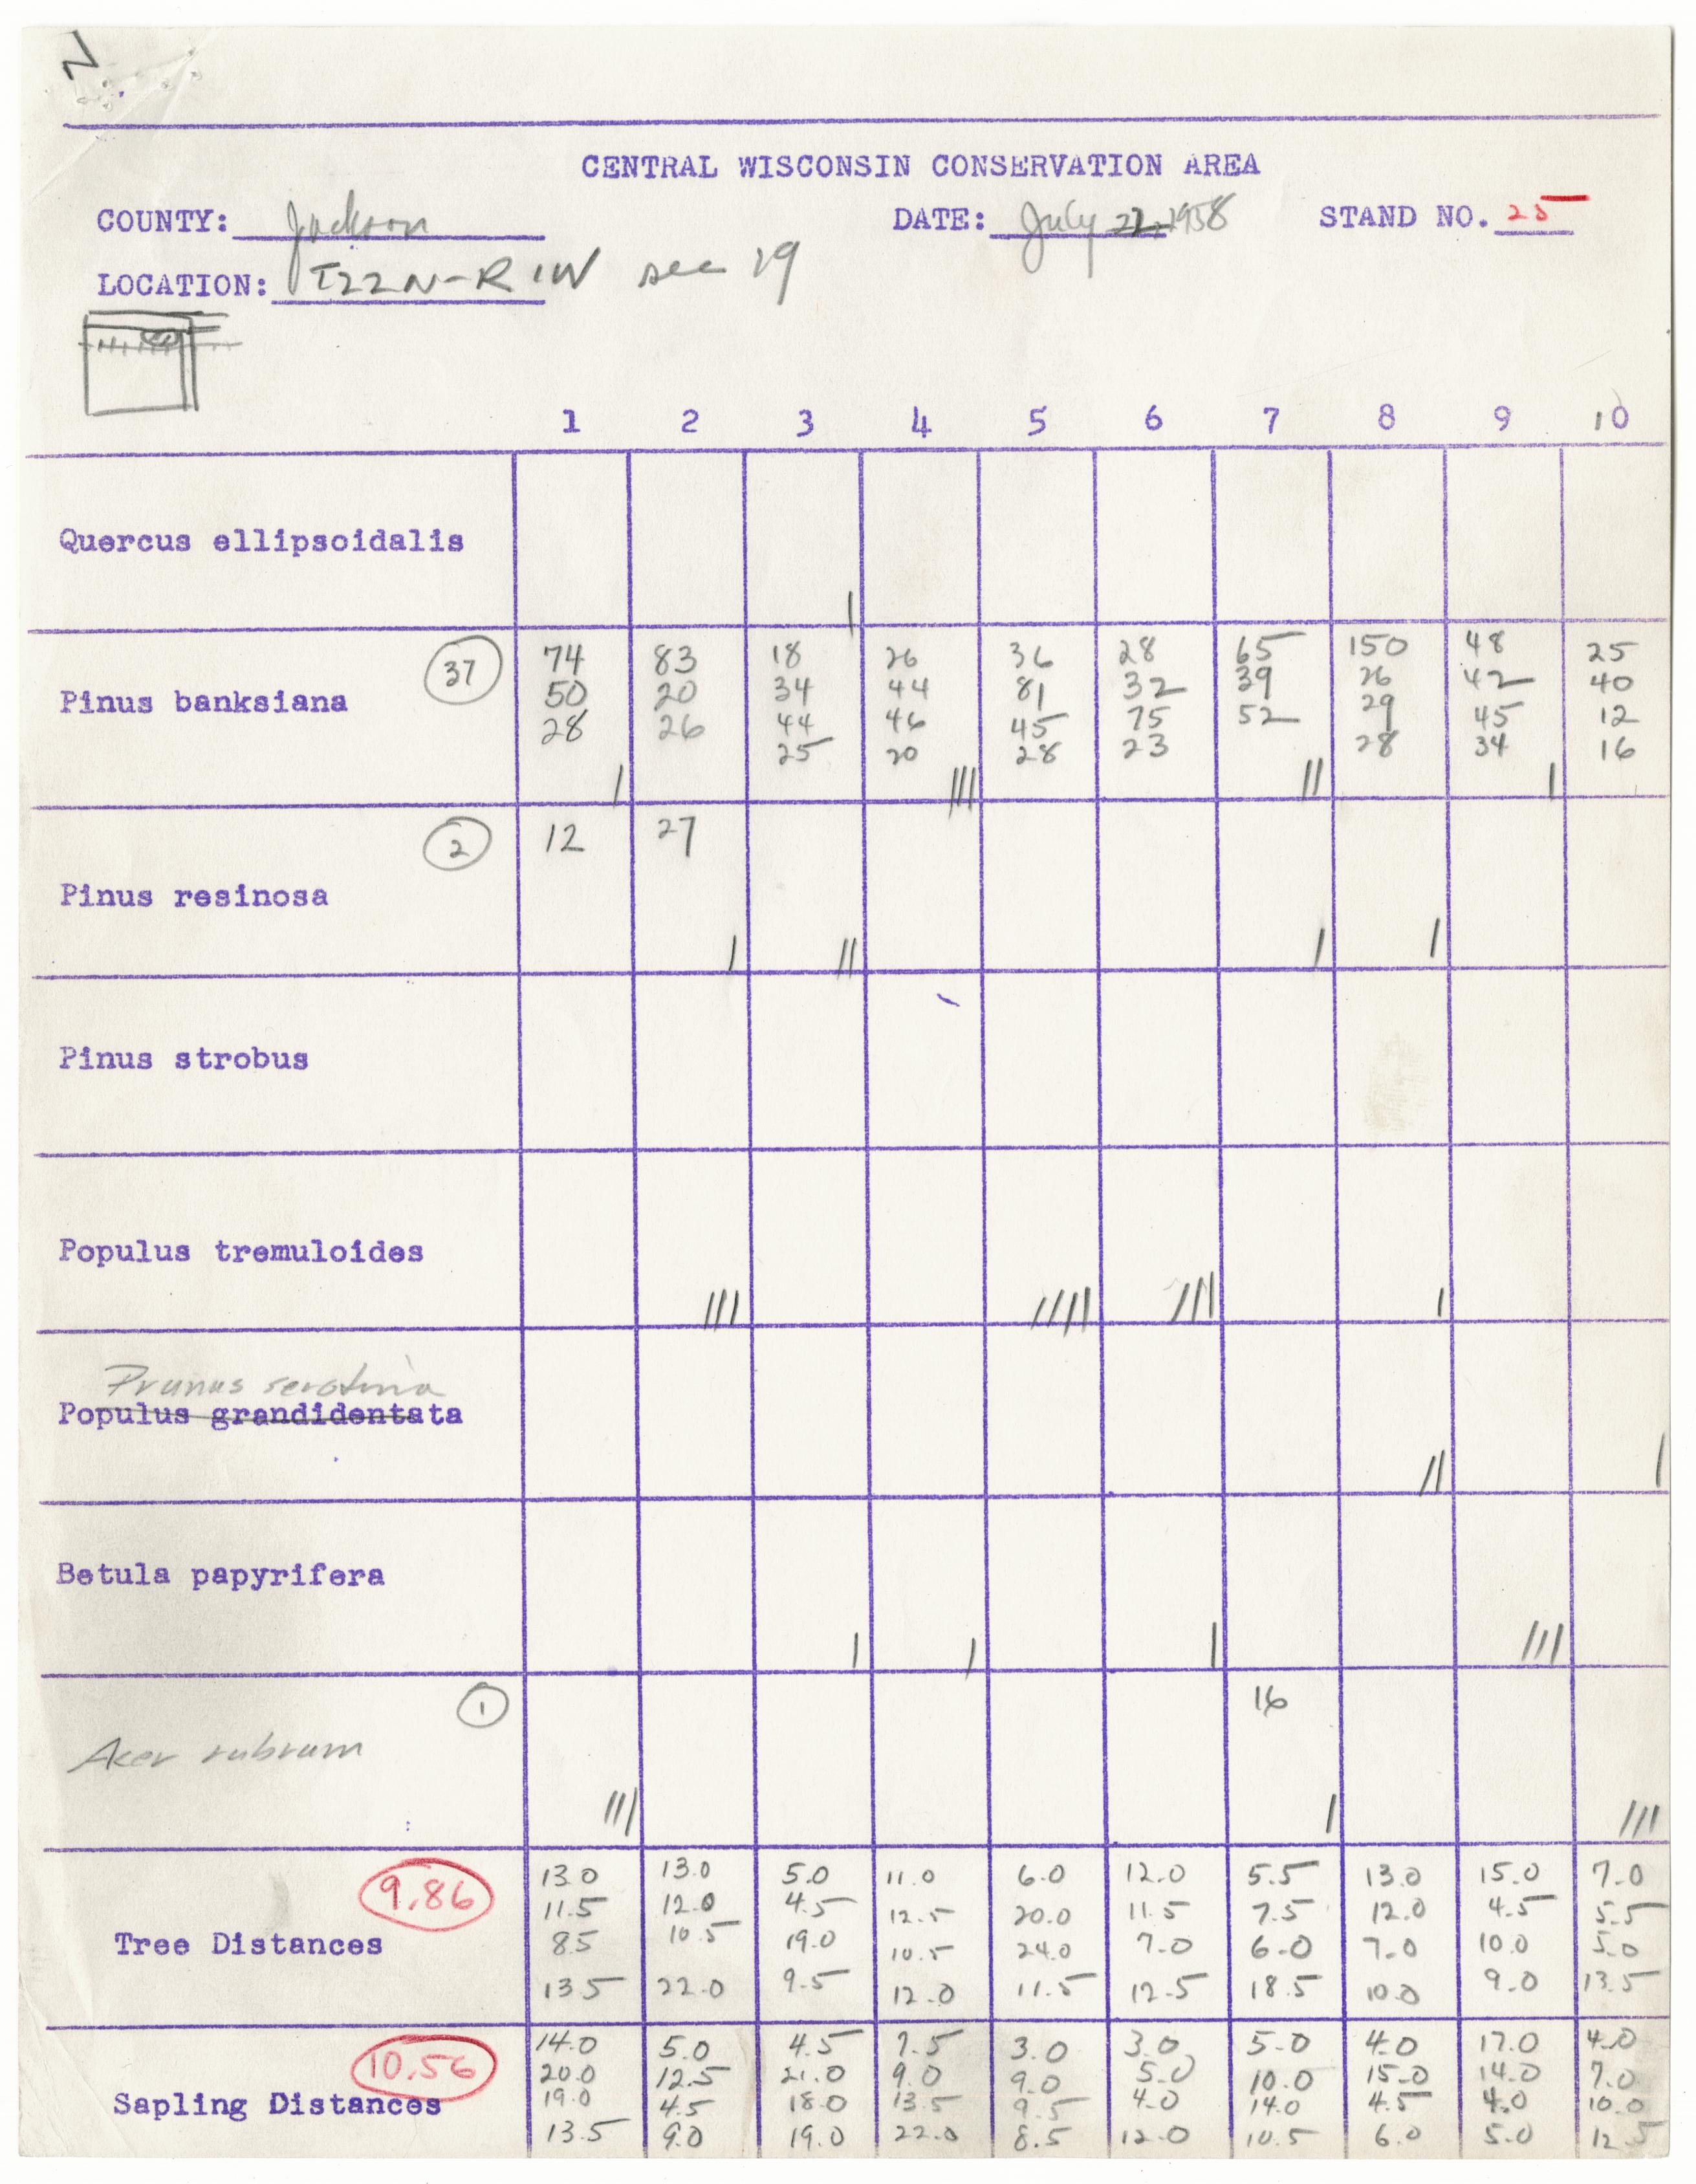 N
CENTRAL WISCONSIN CONSERVATION AREA
COUNTY: Jackson DATE: July 22, 1958 STAND NO. 25
LOCATION: T22N-R1W sec 19
1 2 3 4 5 6 7 8 9 10
Quercus ellipsoidalis |
Pinus banksiana 37
74 83 18 26 36 28 65 150 48 25
50 20 34 44 81 32 39 26 42 40
28 26 44 46 45 75 52 29 45 12
25 20 28 23 28 34 16
| ||| || |
Pinus resinosa 2 12 27
| || | |
Pinus strobus
Populus tremuloides
||| |||| ||| |
Prunus serotina
Populus grandidentata
|| |
Betula papyrifera
| | | |||
Acer rubrum 1 16
||| | |||
Tree Distances 9.86
13.0 13.0 5.0 11.0 6.0 12.0 5.5 13.0 15.0 7.0
11.5 12.0 4.5 12.5 20.0 11.5 7.5 12.0 4.5 5.5
8.5 10.5 19.0 10.5 24.0 7.0 6.0 7.0 10.0 5.0
13.5 22.0 9.5 12.0 11.5 12.5 18.5 10.0 9.0 13.5
Sapling Distances 10.56
14.0 5.0 4.5 7.5 3.0 3.0 5.0 4.0 17.0 4.0
20.0 12.5 21.0 9.0 9.0 5.0 10.0 15.0 14.0 7.0
19.0 4.5 18.0 13.5 9.5 4.0 14.0 4.5 4.0 10.0
13.5 9.0 19.0 22.0 8.5 12.0 10.5 6.0 5.0 12.5